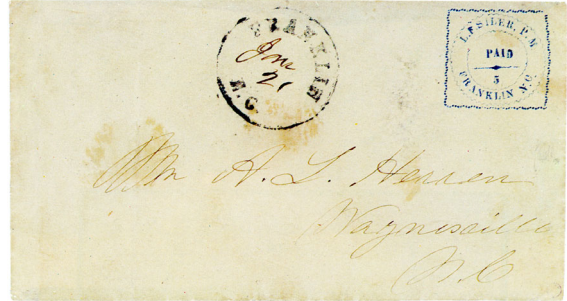 FRANKLIN
N.C.
Jan
21
L.F. SILER, P.M
PAID
5
FRANKLIN N.C.
A. L. Herren
Waynesville
N.C